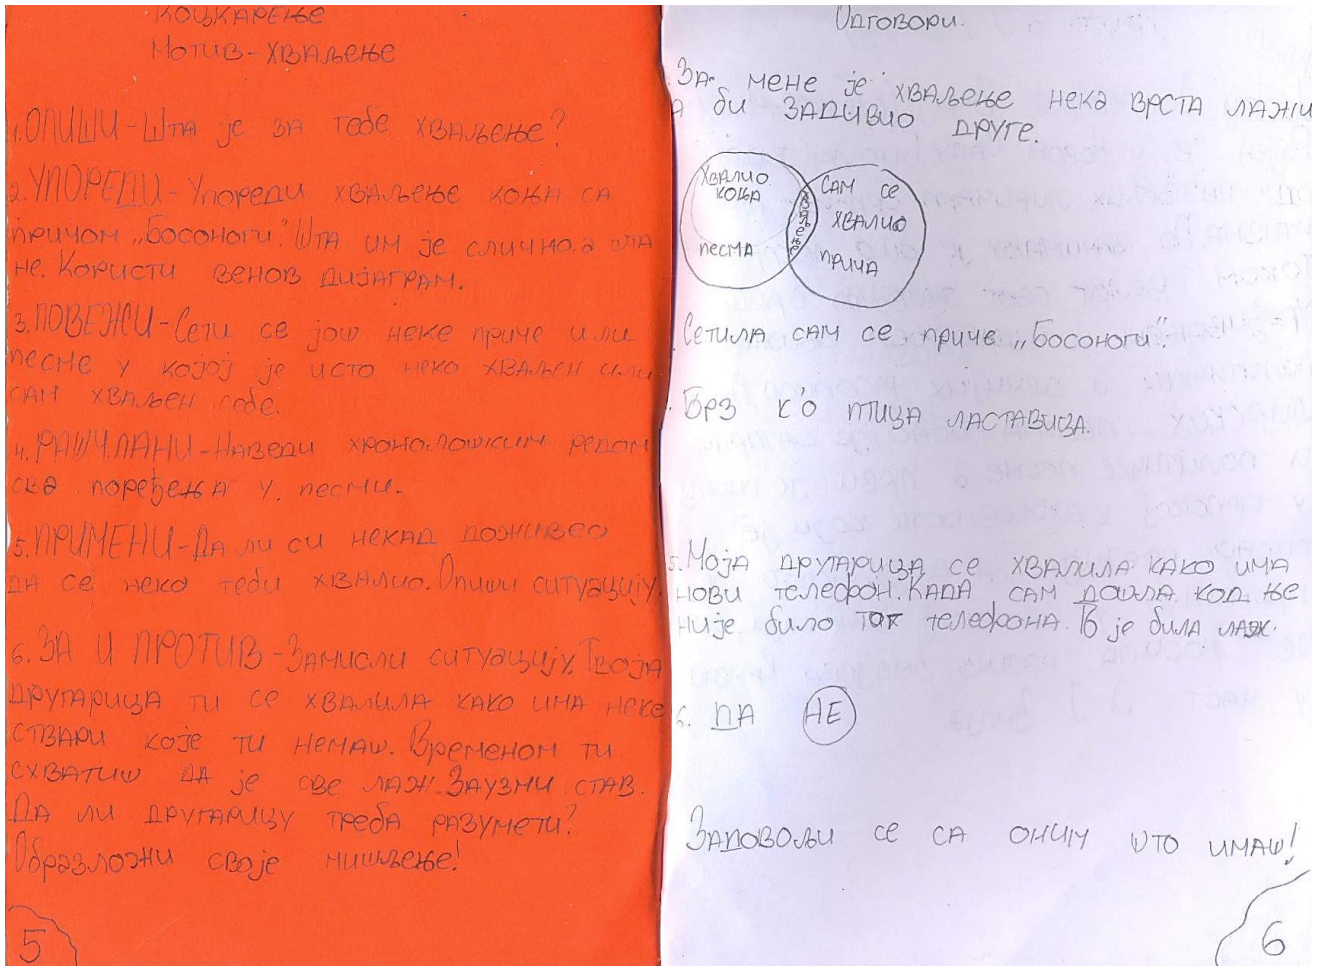 КОЦКАРЕЊЕ
Мотив-ХВАЉЕЊЕ
1.ОПИШИ-Шта је за тебе хваљење?
2.УПОРЕДИ-Упореди хваљење коња са
причом „Босоноги". Шта им је слично, а шта
не. Користи венов дијаграм.
3.ПОВЕЖИ-Сети се још неке приче или
песме у којој је исто неко хваљен или
сам хваљен себе.
4.РАШЧЛАНИ-Наведи хронолошким редом
сва поређења у песми.
5.ПРИМЕНИ-Да ли си некад доживео
да се неко теби хвалио. Опиши ситуацију.
6.ЗА И ПРОТИВ-Замисли ситуацију. Твоја
другарица ти се хвалила како има неке
ствари које ти немаш. Временом ти
схватиш да је све лаж. Заузми став.
Да ли другарицу треба разумети?
Образложи своје мишљење!
5
Одговори.
За мене је хваљење нека врста лажи
а би задивио друге.
ХВАЛИО
КОЊА
ПЕСМА
хваљење
САМ СЕ
ХВАЛИО
ПРИЧА
Сетила сам се приче „Босоноги".
Брз к'о птица ластавица.
5.Моја другарица се хвалила како има
нови телефон. Када сам дошла код ње
није било тог телефона. То је била лаж.
6. ДА НЕ
Задовољи се са оним што имаш!
6